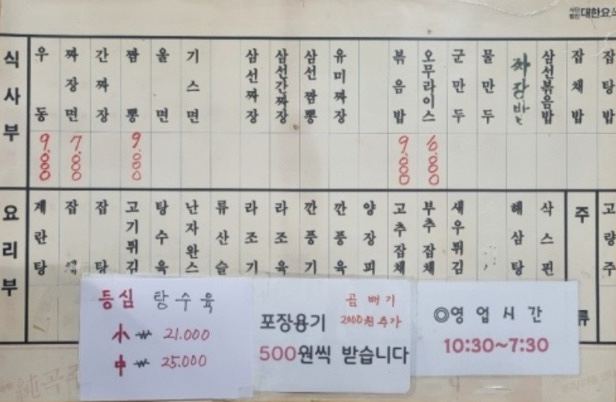 사단법인 대한요
식사부
우동
9.000
짜장면
7.000
간짜장
짬뽕
9.000
울면
기스면
삼선짜장
삼선간짜장
삼선짬뽕
유미짜장
볶음밥
9.000
오무라이스
군만두
물만두
짜장밥
삼선볶음밥
잡채밥
잡탕밥
요리부
계란탕
잡
잡탕
고기튀김
탕수육
난자완스
류산슬
라조기
라조육
깐풍기
깐풍육
양장피
고추잡채
부추잡채
새우튀김
해삼탕
삭스핀
주류
고량주
등심 탕수육
小 ₩ 21.000
中 ₩ 25.000
곱배기
2000원 추가
포장용기
500원씩 받습니다
◎영업시간
10:30~7:30